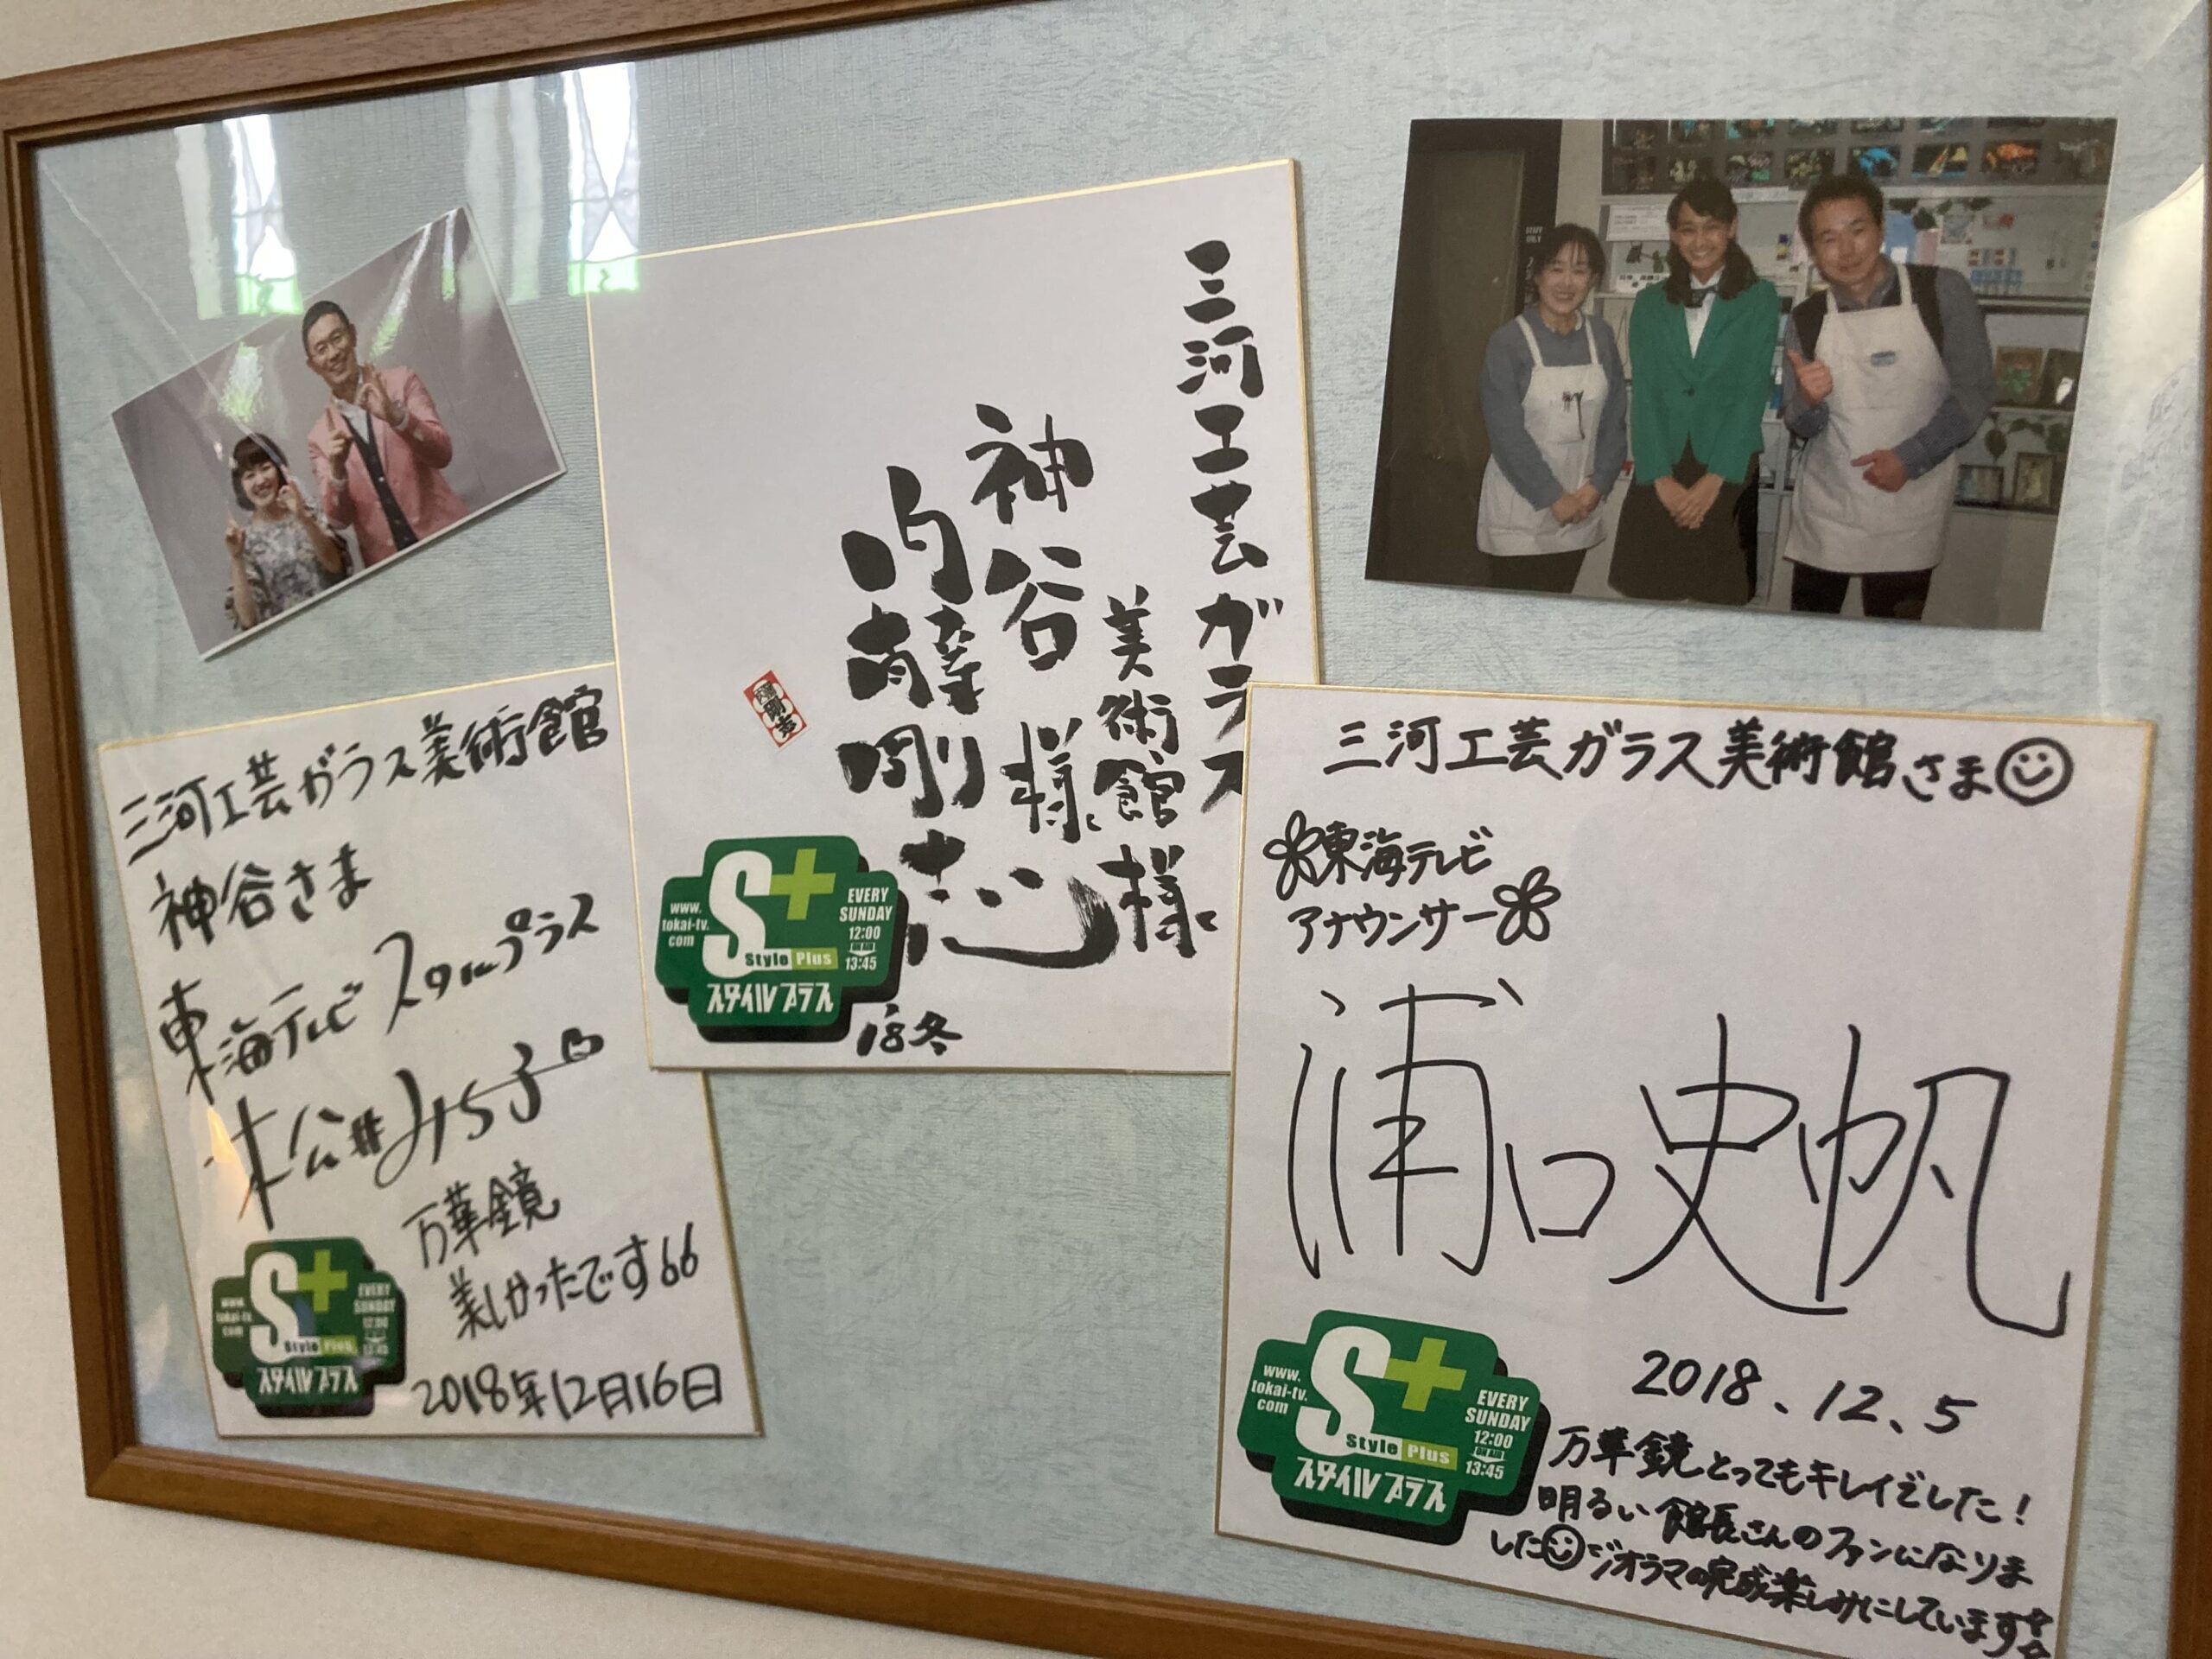 三河工芸ガラス美術館
神谷さま
東海テレビ スタイルプラス
松井みさ子
万華鏡
美しかったです
2018年12月16日
www.
tokai-tv.
com
S+
Style Plus
スタイルプラス
EVERY
SUNDAY
12:00
13:45
三河工芸ガラス
美術館様
神谷様
内藤剛志
'18冬
www.
tokai-tv.
com
S+
Style Plus
スタイルプラス
EVERY
SUNDAY
12:00
ON AIR
13:45
三河工芸ガラス美術館さま
東海テレビ
アナウンサー
浦口史帆
2018.12.5
万華鏡とってもキレイでした!
明るい館長さんのファンになりま
した ジオラマの完成楽しみにしています
www.
tokai-tv.
com
S+
Style Plus
スタイルプラス
EVERY
SUNDAY
12:00
ON AIR
13:45